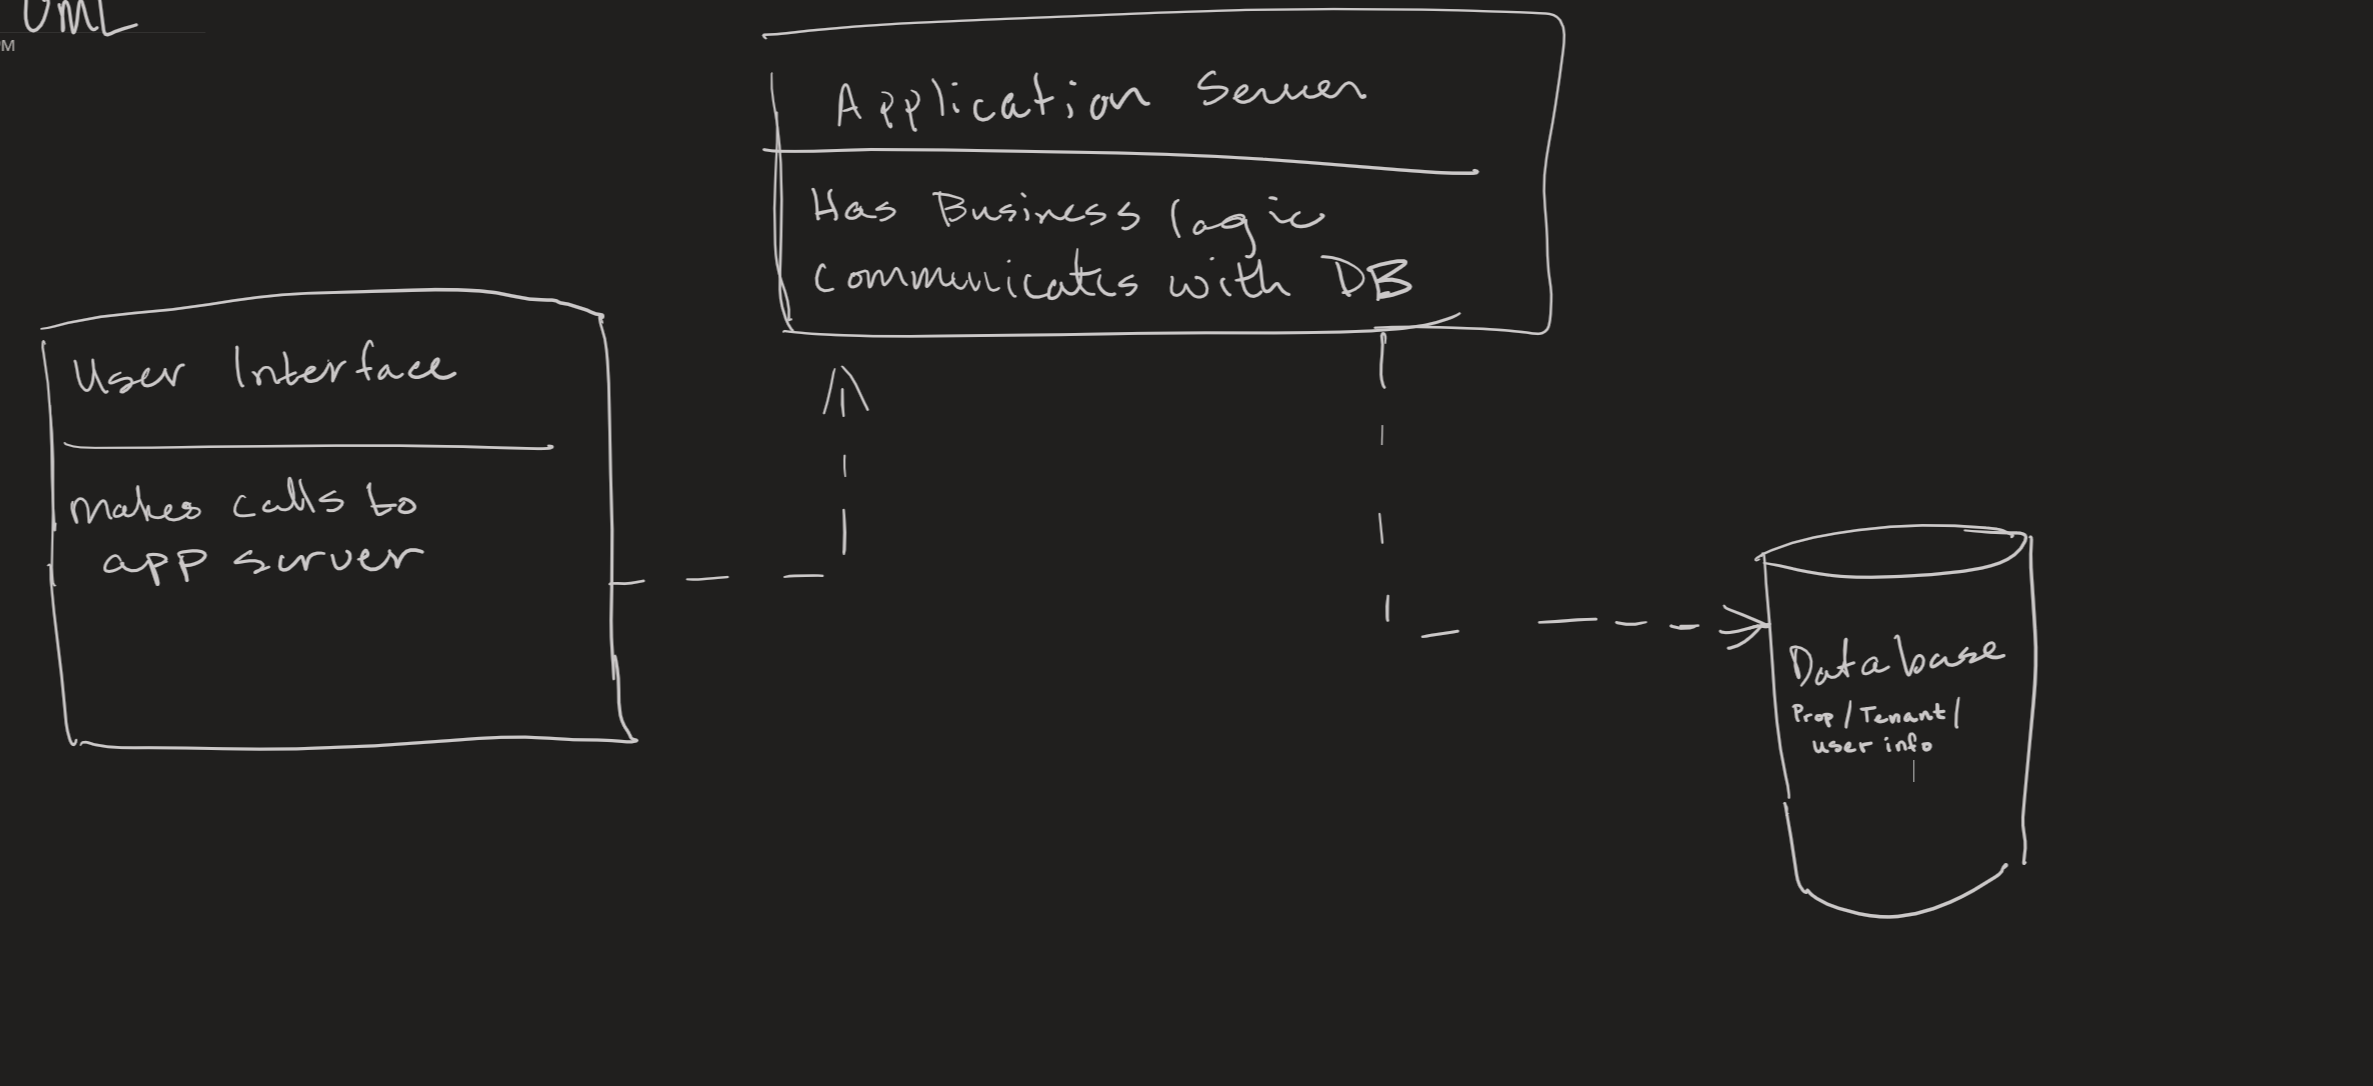 UML
PM
Application Server
Has Business logic
Communicates with DB
User Interface
makes calls to
app server
Database
Prop/Tenant/
user info